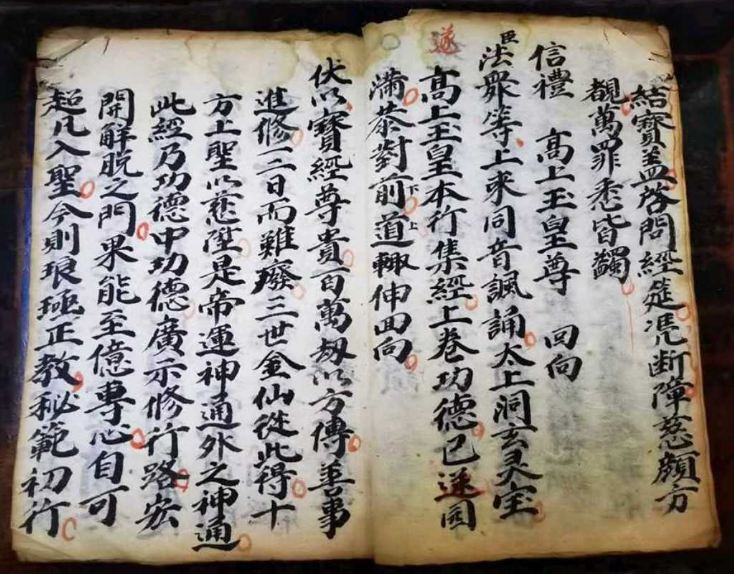 結寶盖啓問經筵凭断障慈顔方
覩萬罪悉皆蠲
信禮 高上玉皇尊 回向
臣法衆等上来同音諷誦太上洞玄灵宝
遂
高上玉皇本行集經上卷功德已遂圆
满恭對前下道上輙伸回向
伏以寶經尊貴百萬刼以方傳善事
進修一二日而難廢三世金仙從此得十
方上聖以慈陞是帝運神通外之神通
此經乃功德中功德廣示修行路宏
開解脱之門果能至億專心自可
超凡入聖今則琅正教秘範初行